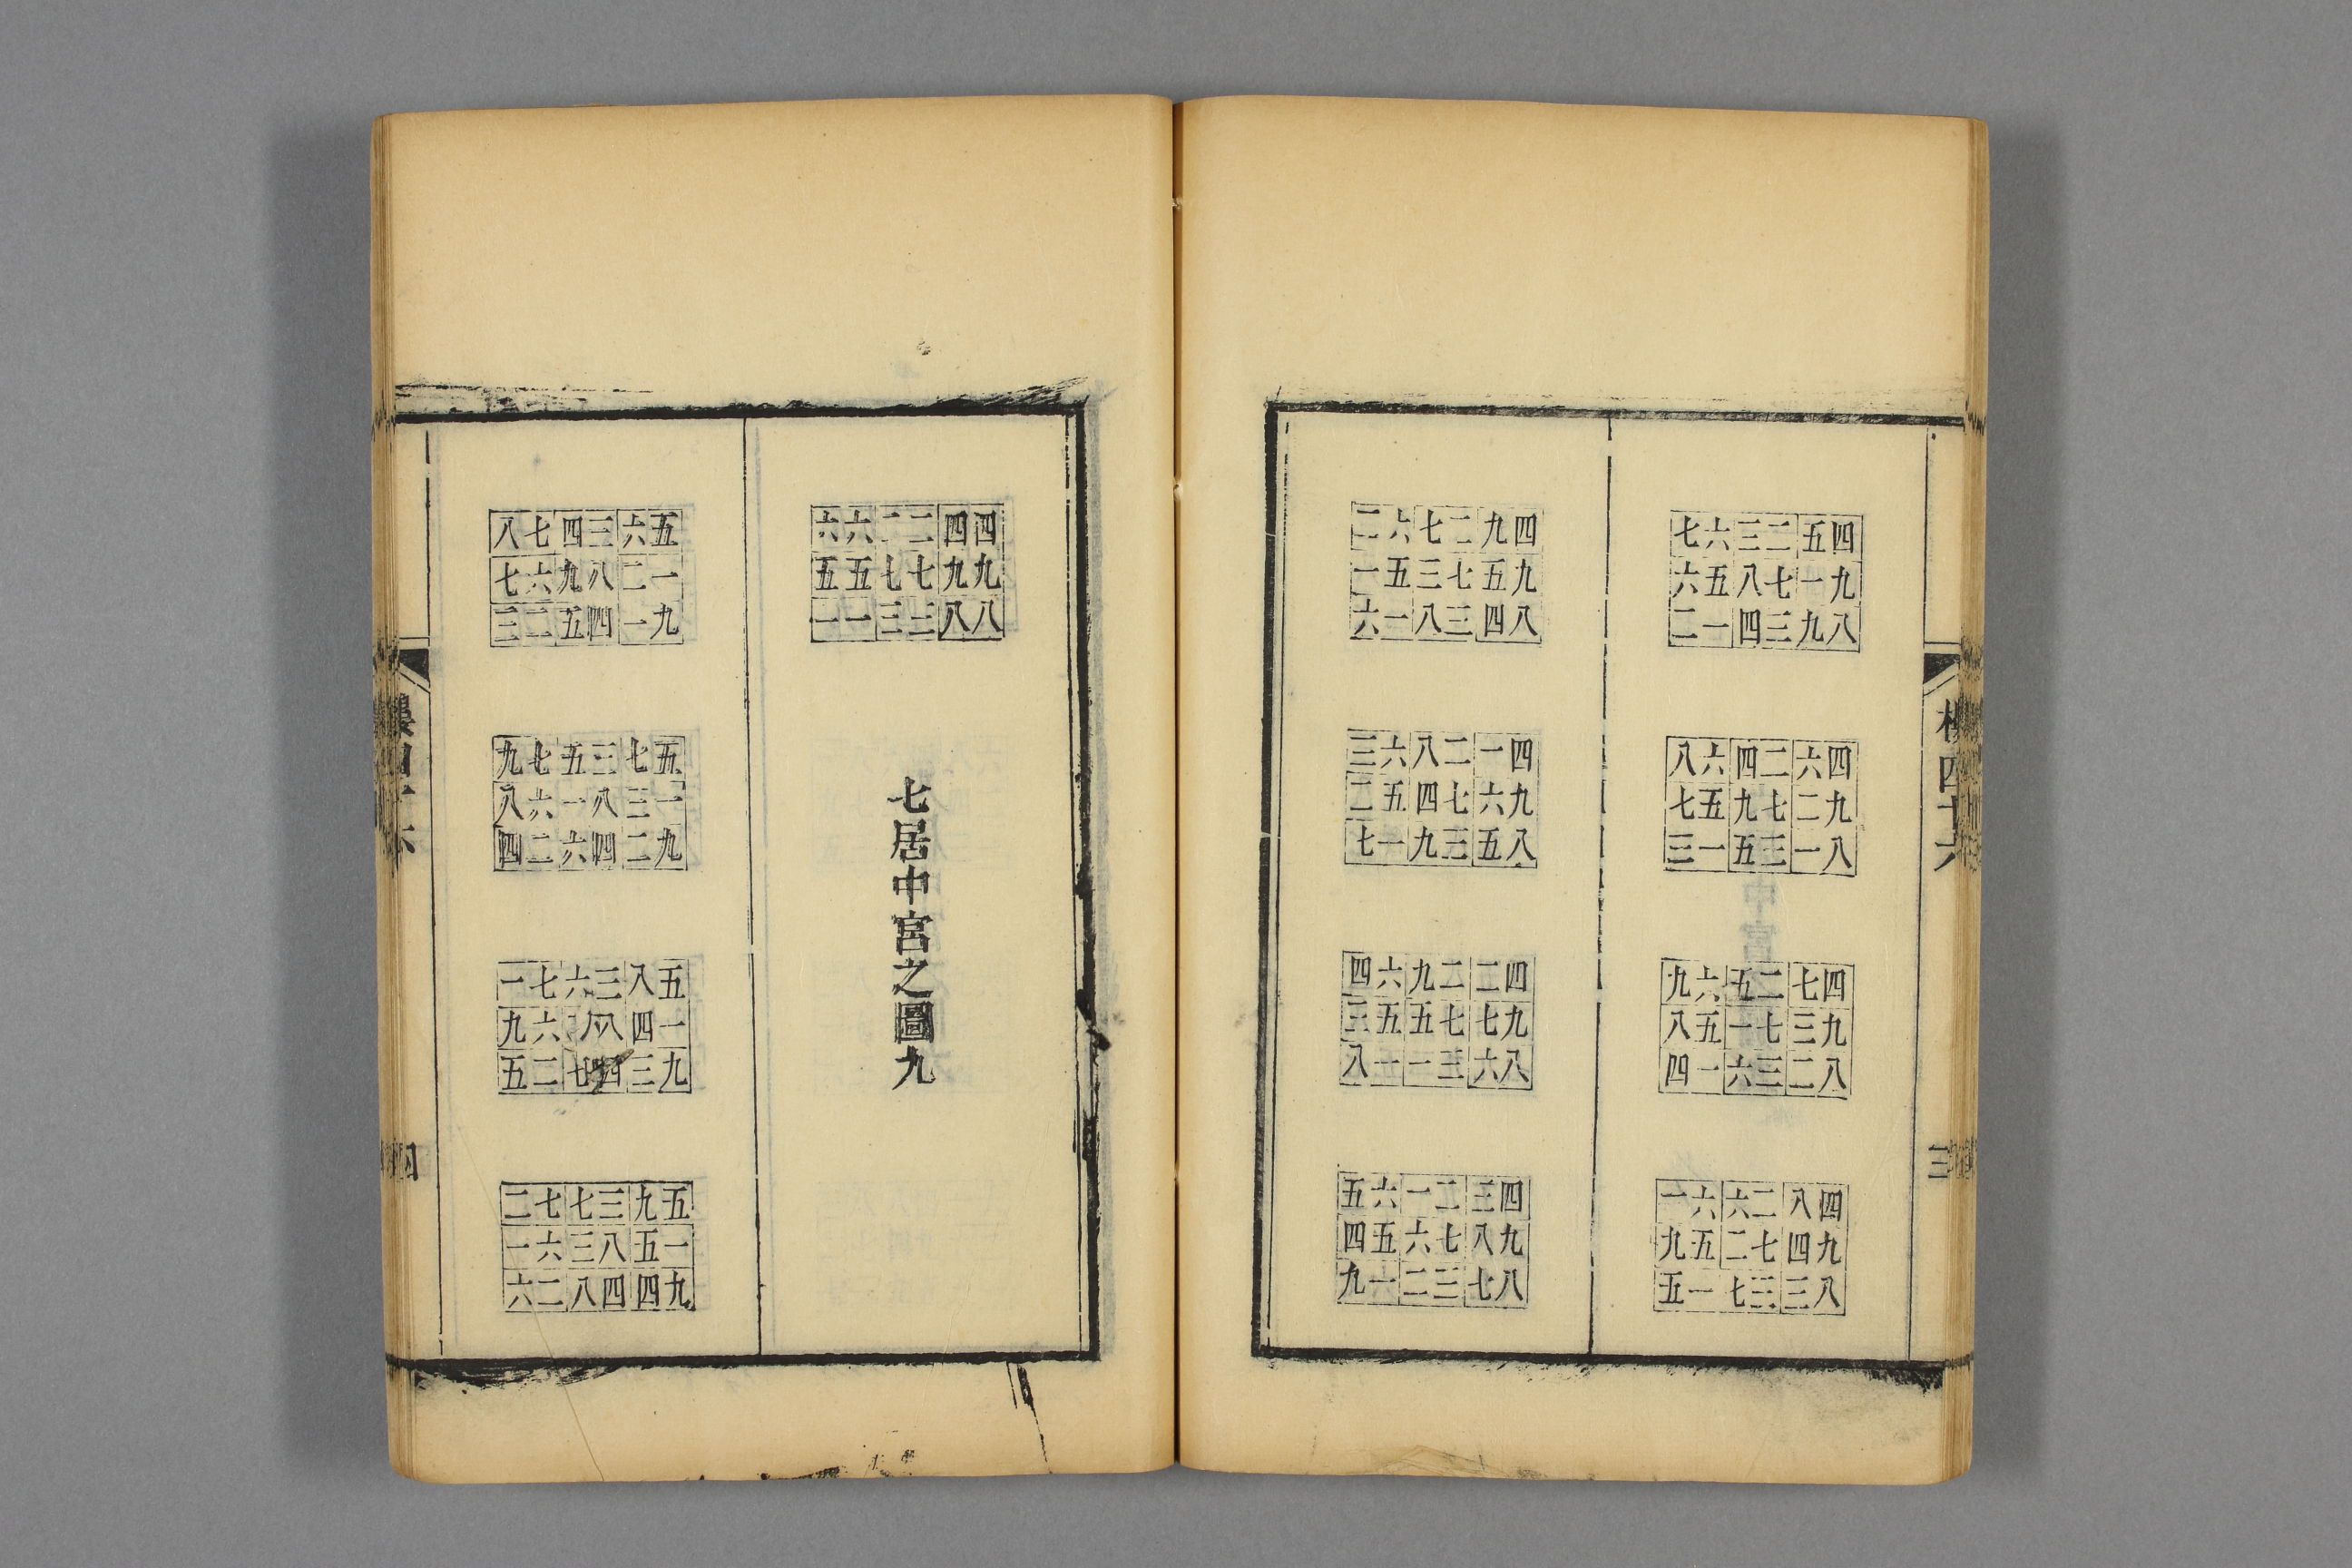 七六三二五四
六五八七一九
二一四三九八
八六四二六四
七五九七二九
三一五三一八
九六五二七四
八五一七三九
四一六三二八
一六六二八四
九五二七四九
五一七三三八
二六七二九四
一五三七五九
六一八三四八
三六八二一四
二五四七六九
七一九三五八
四六九二二四
三五五七七九
八一一三六八
五六一二三四
四五六七八九
九一二三七八
六六二二四四
五五七七九九
一一三三八八
七居中宮之圖九
八七四三六五
七六九八二一
三二五四一九
九七五三七五
八六一八三一
四二六四二九
一七六三八五
九六二八四一
五二七四三九
二七七三九五
一六三八五一
六二八四四九